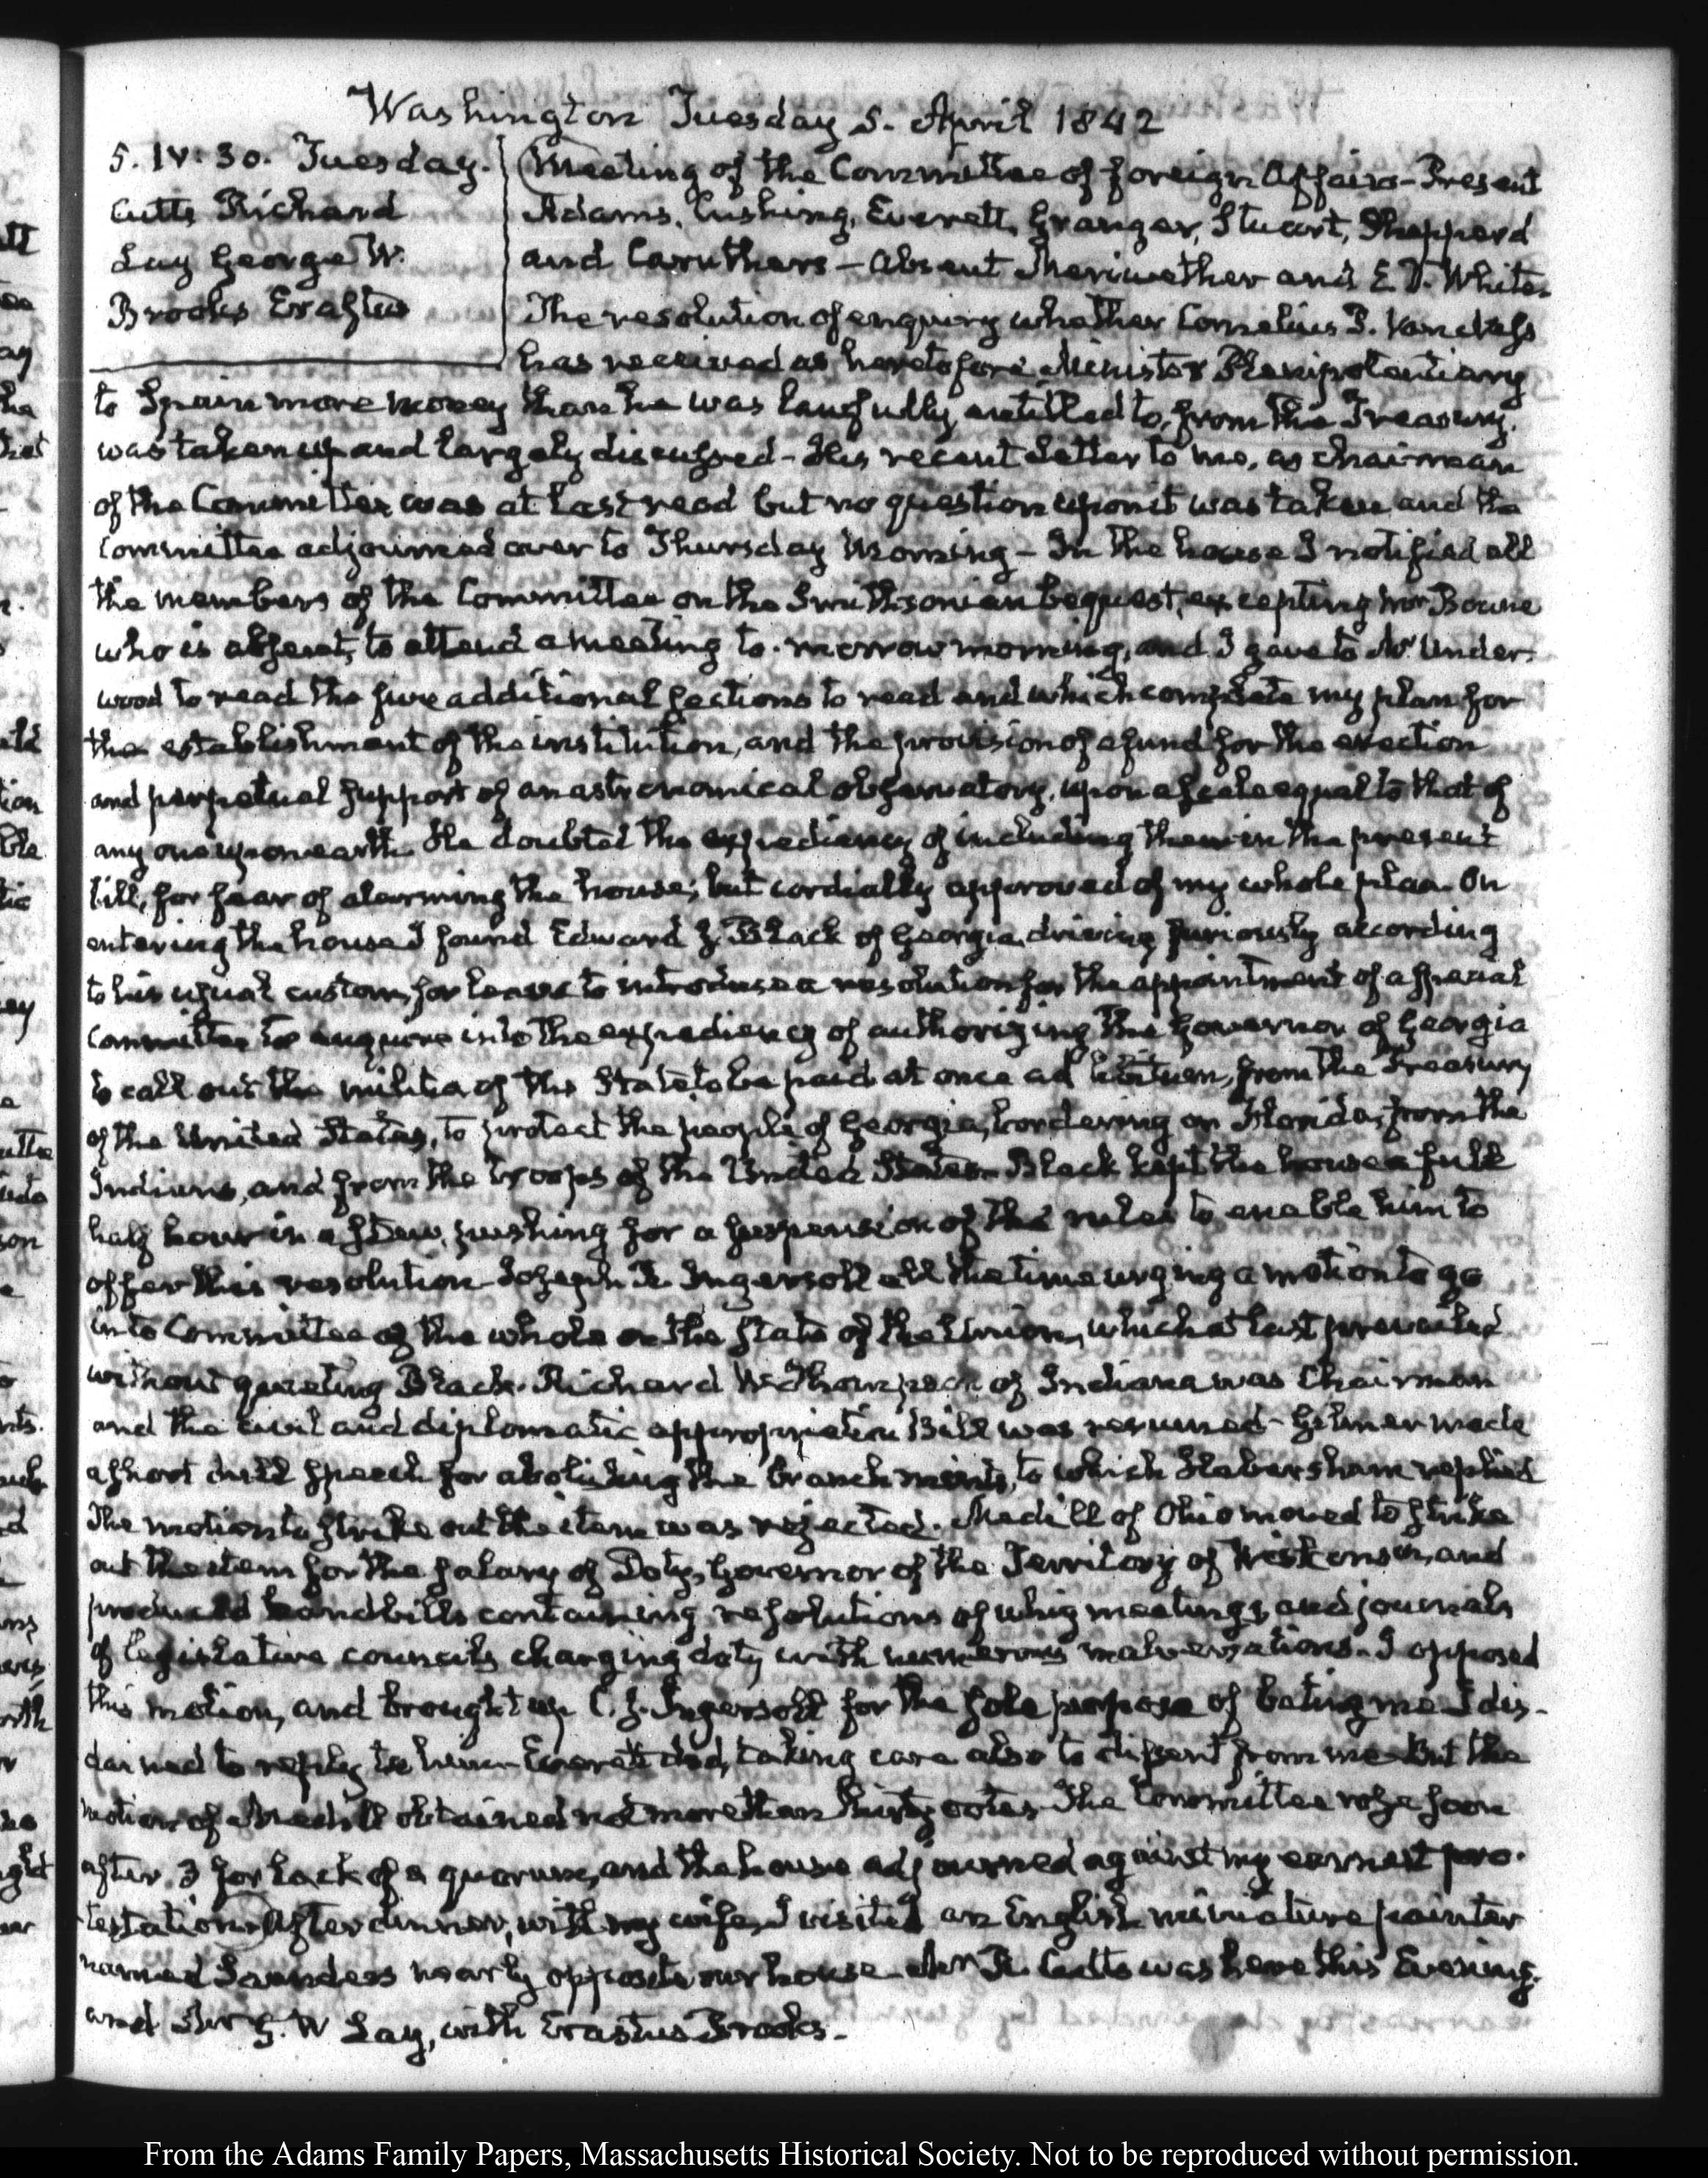 Washington Tuesday 5. April 1842
5. IV. 30. Tuesday.
Cutts Richard
Lay George W.
Brooks Erastus
Meeting of the Committee of foreign Affairs – Present
Adams, Cushing, Everett, Granger, Stuart, Shepperd
and Caruthers – absent Meriwether and E D. White.
The resolution of enquiry whether Cornelius P. Van Ness
has received as heretofore Minister Plenipotentiary
to Spain more money than he was lawfully entitled to, from the Treasury.
was taken up and largely discussed – His recent Letter to me, as chairman
of the Committee was at last read but no question upon it was taken and the
Committee adjourned over to Thursday Morning – In the house I notified all
the members of the Committee on the Smithsonian bequest, excepting Mr Bowne
who is absent, to attend a meeting to-morrow morning, and I gave to Mr Under-
wood to read the five additional sections to read and which complete my plan for
the establishment of the institution, and the provision of a fund for the erection
and perpetual support of an astronomical observatory, upon a scale equal to that of
any one upon earth He doubted the expediency of including them in the present
bill, for fear of alarming the house; but cordially approved of my whole plan. On
entering the house I found Edward J. Black of Georgia, driving furiously according
to his usual custom, for leave to introduce a resolution for the appointment of a special
Committee to enquire into the expediency of authorizing the Governor of Georgia
to call out the militia of the State, to be paid at once ad libitum, from the Treasury
of the United States, to protect the people of Georgia, bordering on Florida, from the
Indians, and from the troops of the United States – Black kept the house a full
half hour in a stew, pushing for a suspension of the rules to enable him to
offer this resolution Joseph R. Ingersoll all the time urging a motion to go
into Committee of the whole on the state of the Union, which at last prevailed
without quieting Black. Richard W. Thompson of Indiana was Chairman
and the civil and diplomatic appropriation Bill was resumed – Gilmer made
a short dull speech for abolishing the branch mints, to which Habersham replied
The motion to strike out the item was rejected. Medill of Ohio moved to strike
out the item for the salary of Doty, Governor of the Territory of Wiskonsin, and
produced handbills containing resolutions of whig meetings, and journals
of legislative councils charging doty with numerous malversations. I opposed
this motion, and brought up C. J. Ingersoll for the sole purpose of baiting me I dis-
dained to reply to him – Everett did, taking care also to dissent from me – But the
motion of Medill obtained not more than thirty votes – The Committee rose soon
after 3 for lack of a quorum, and the house adjourned against my earnest pro-
testation. After dinner, with my wife, I visited an English miniature painter
named Saunders nearly opposite our house – Mr R. Cutts was here this Evening.
and Mr G. W Lay, with Erastus Brooks. –
From the Adams Family Papers, Massachusetts Historical Society. Not to be reproduced without permission.